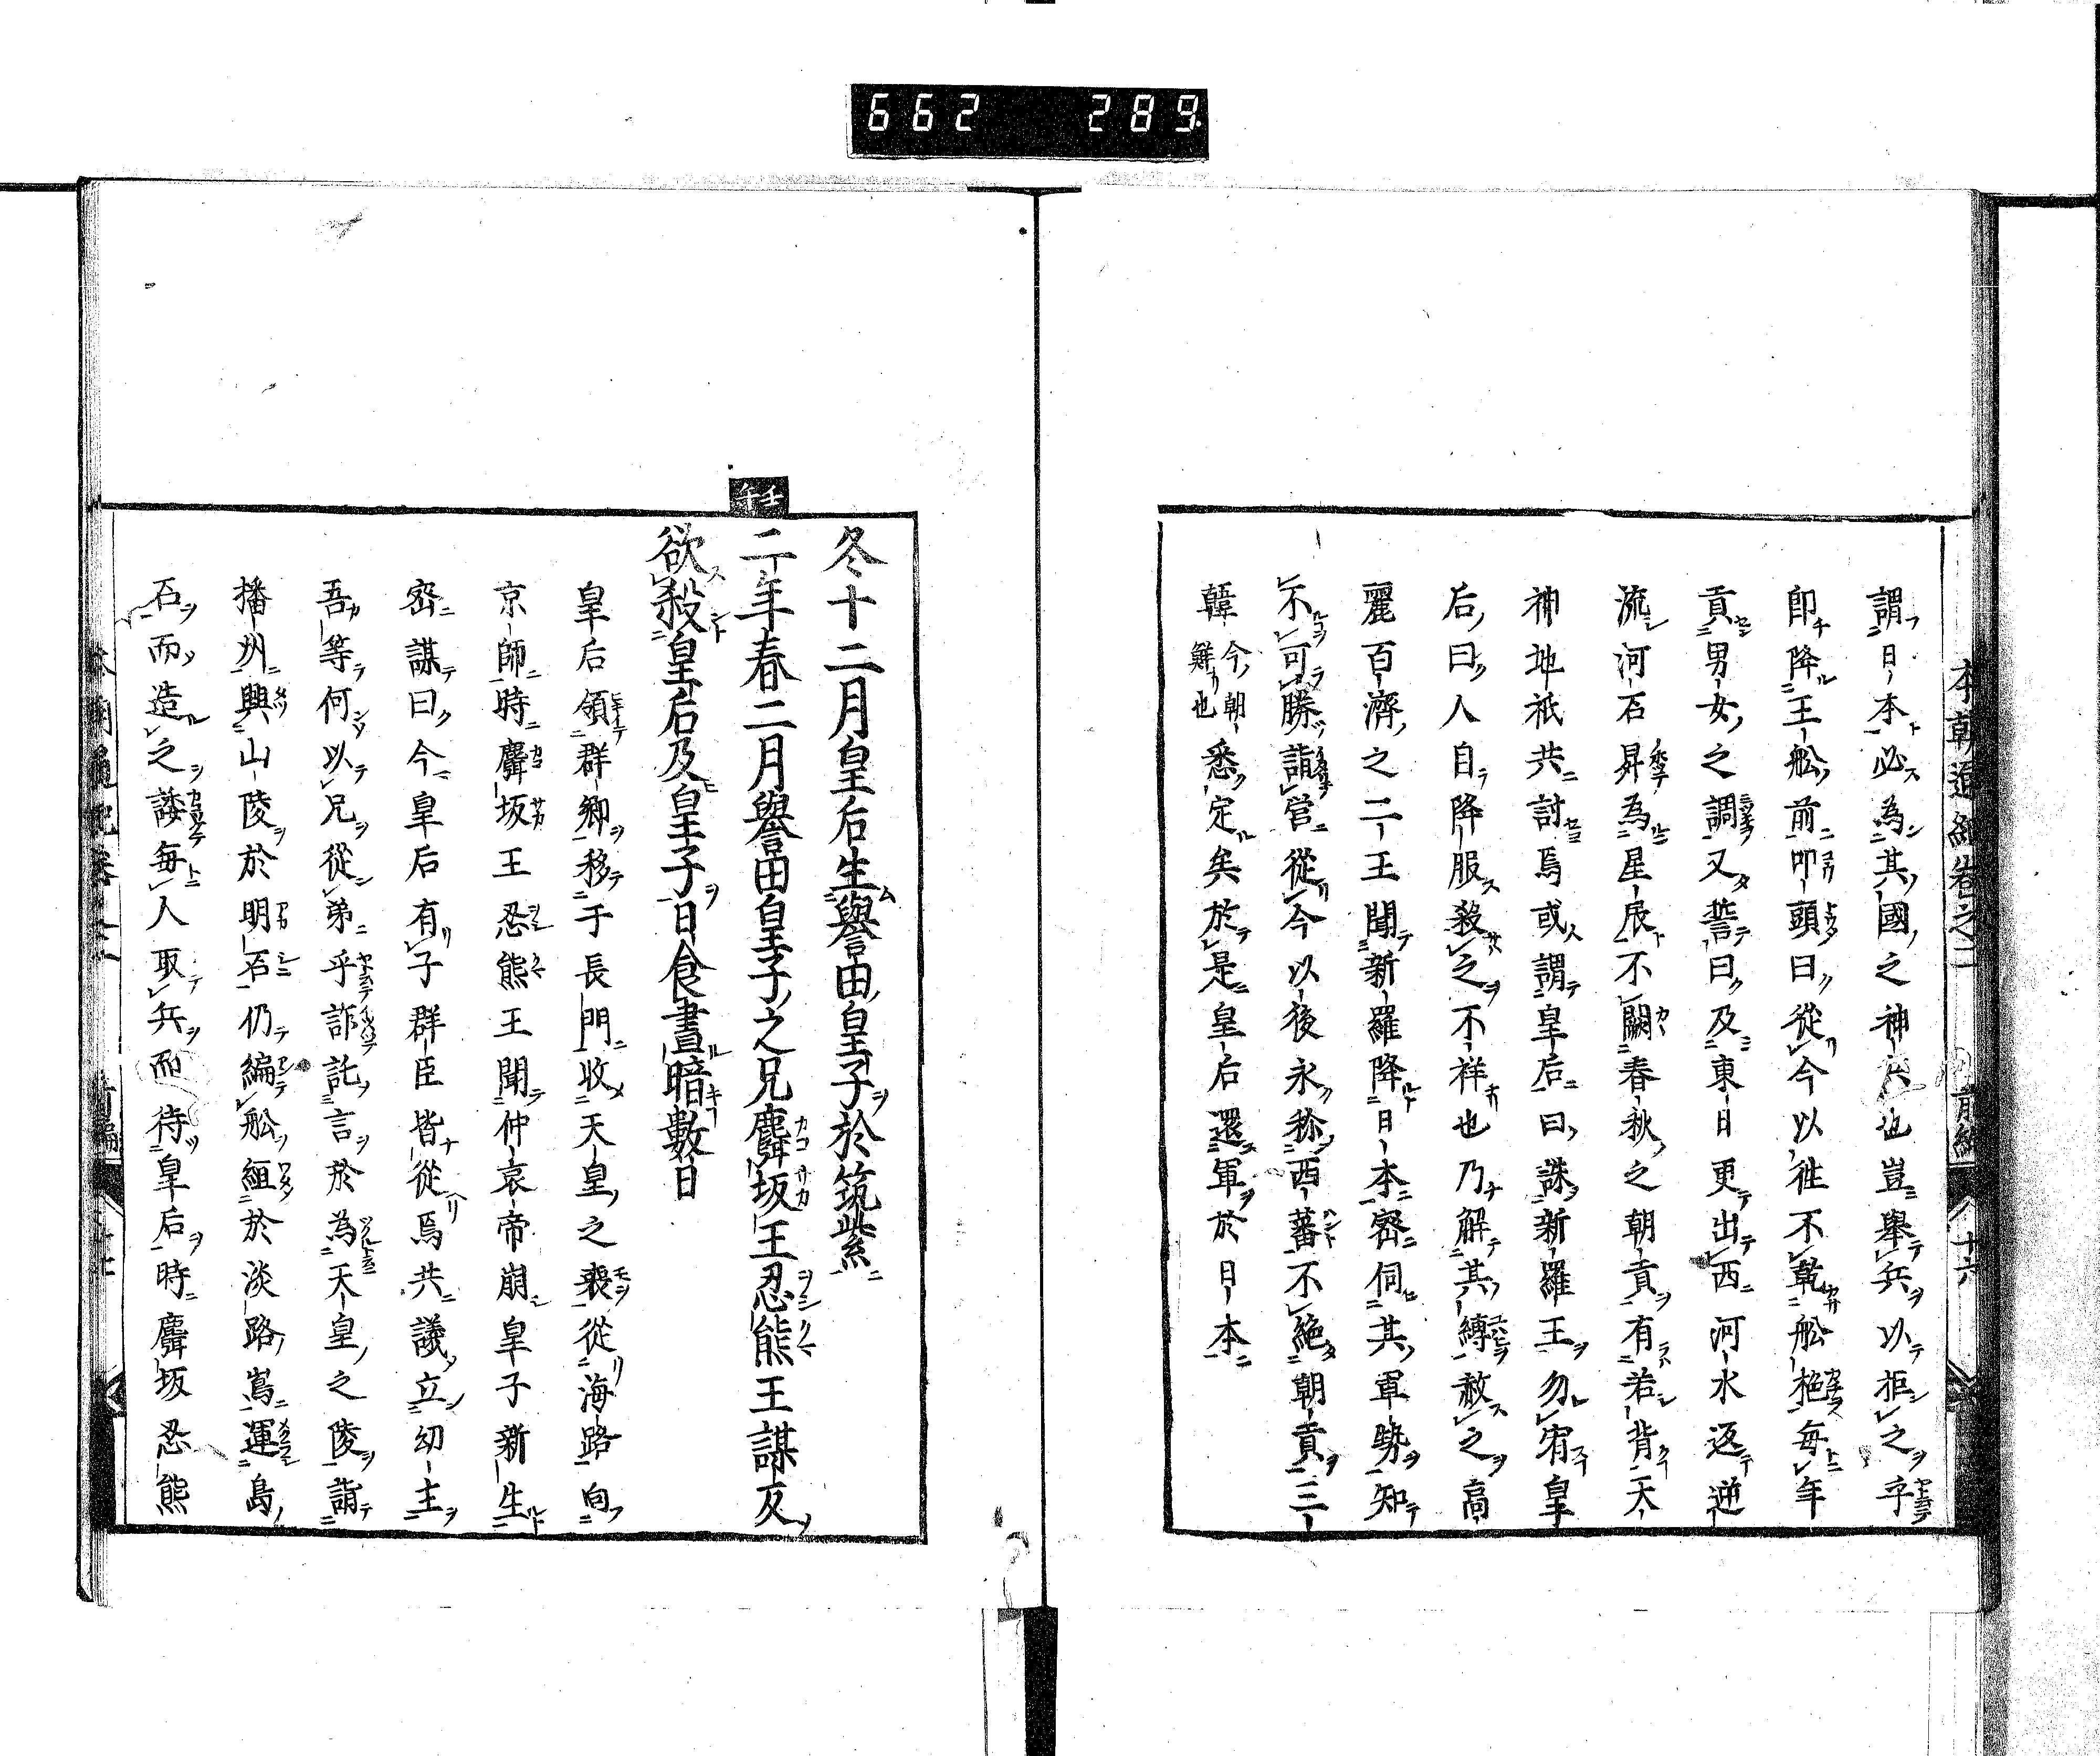 662 289
本朝通紀卷之二 前編 十六
謂日本必為其國之神兵也豈舉兵以拒之乎
即降王舩前叩頭曰從今以徃不乾舩柂毎年
貢男女之調又誓曰及東日更出西河水返逆
流河石昇為星辰不闕春秋之朝貢有若背天
神地祇共討焉或謂皇后曰誅新羅王勿宥皇
后曰人自降服殺之不祥也乃解其縛赦之高
麗百濟之二王聞新羅降日本密伺其軍勢知
不可勝詣營從今以後永称西蕃不絶朝貢三
韓今朝鮮也悉定矣於是皇后還軍於日本
冬十二月皇后生譽田皇子於筑紫
壬午
二年春二月譽田皇子之兄麛坂王忍熊王謀反
欲殺皇后及皇子日食晝暗數日
皇后領群卿移于長門收天皇之喪從海路向
京師時麛坂王忍熊王聞仲哀帝崩皇子新生
密謀曰今皇后有子群臣皆從焉共議立幼主
吾等何以兄從弟乎詐託言於為天皇之陵詣
播州興山陵於明石仍編舩絙於淡路嶌運島
石而造之諉毎人取兵而待皇后時麛坂忍熊